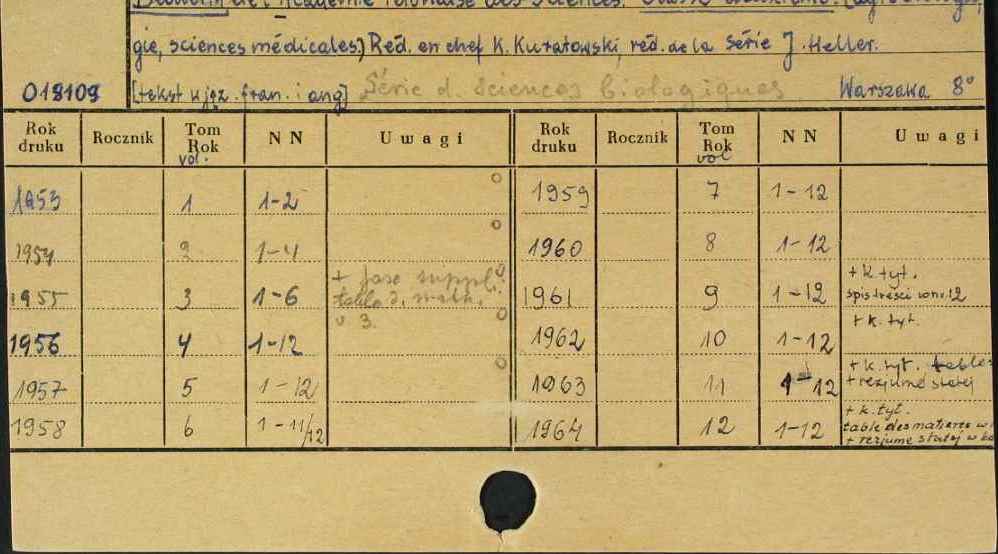 Bulletin de l'Académie Polonaise des Sciences. Classe deuxième.
gie, sciences médicales.) Réd. en chef K. Kuratowski, réd. de la Série J. Heller.
018109 [tekst w jęz. fran. i ang] Série d. sciences biologiques Warszawa 8°
Rok druku Rocznik Tom Rok vol. NN Uwagi Rok druku Rocznik Tom Rok vol NN Uwagi
1953 1 1-2 1959 7 1-12
1954 2 1-4 1960 8 1-12
1955 3 1-6 + fasc suppl. 1961 9 1-12 + k. tyt. spis treści w nr. 12
v 3.
1956 4 1-12 1962 10 1-12 + k. tyt.
1957 5 1-12 1963 11 1-12 + k. tyt. tables + rezjume statej
1958 6 1-11/12 1964 12 1-12 + k. tyt. table des matieres w + rezjume statej w